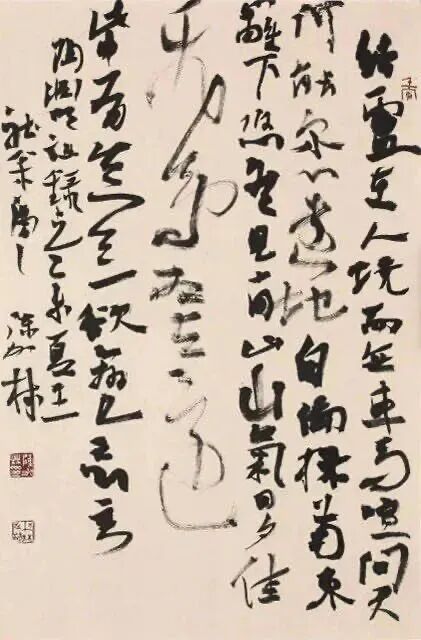 結廬在人境而無車馬喧問君
何能爾心遠地自偏採菊東
籬下悠然見南山山氣日夕佳
飛鳥相與還
此中有真意欲辨已忘言
陶淵明詩錄之乙未夏